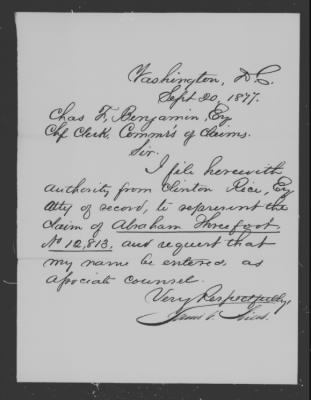 Washington, D.C.
Sept 20, 1877.
Chas F. Benjamin, Esq
Chf Clerk, Commrs of Claims.
Sir.
I file herewith
authority from Clinton Rice, Esq
Atty of record, to represent the
claim of Abraham Threefoot
No 12,813. and request that
my name be entered as
associate counsel.
Very Respectfully,